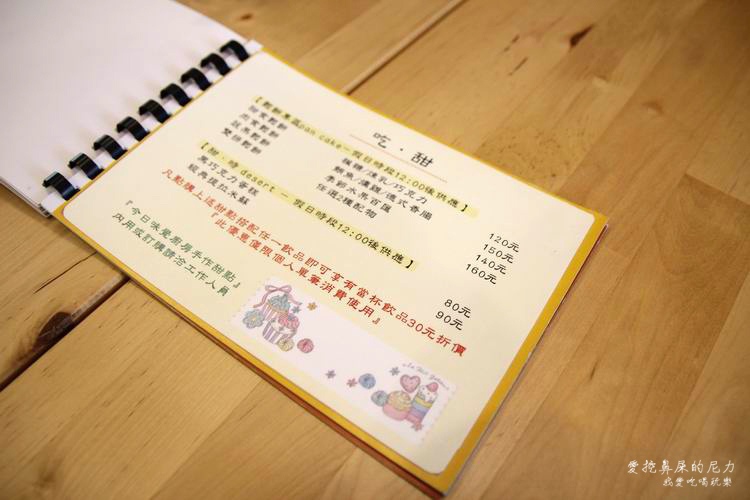 吃．甜
【鬆餅專區pan cake－假日時段12:00後供應】
甜食鬆餅 蜂糖/煉乳/巧克力 120元
出食鬆餅 鮪魚/燻雞/德式香腸 150元
蔬果鬆餅 季節水果百匯 140元
雙拼鬆餅 任選2種配物 160元
【甜．時 desert － 假日時段12:00後供應】
黑巧克力蛋糕 80元
經典提拉米蘇 90元
凡點購上述甜點搭配任一飲品即可享有當杯飲品30元折價
『此優惠僅限個人單筆消費使用』
『今日味覺廚房手作甜點』
內用或訂購請洽工作人員
愛挖鼻屎的尼力
我愛吃喝玩樂